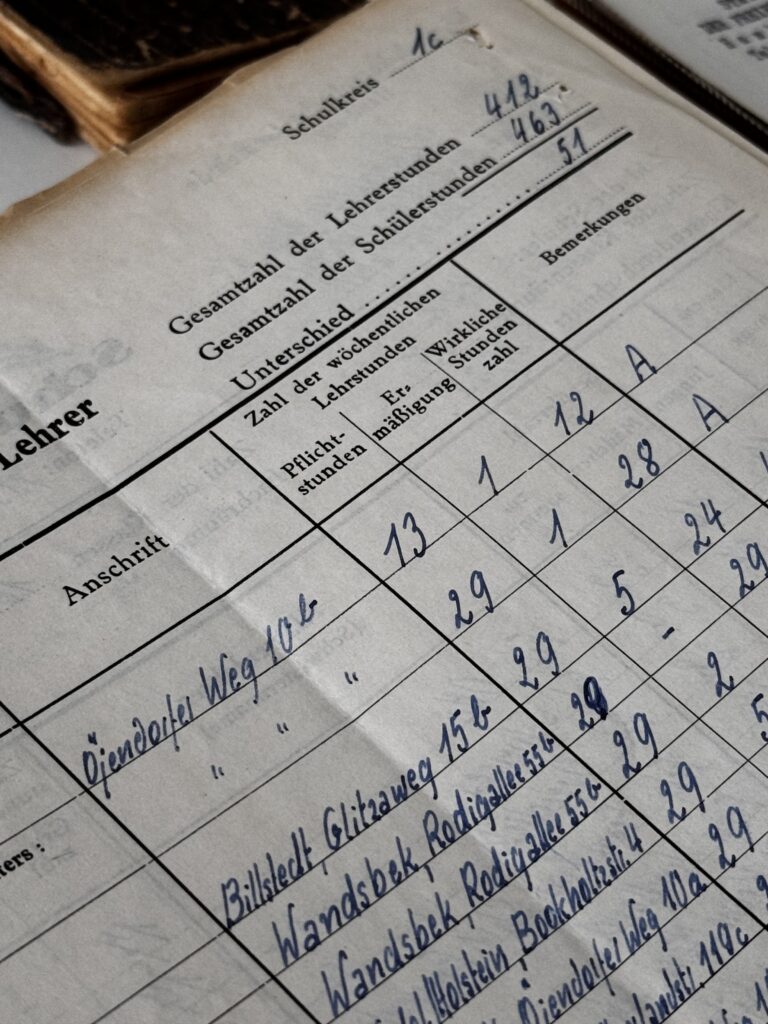 Schulkreis 1c
Gesamtzahl der Lehrerstunden 412
Gesamtzahl der Schülerstunden 463
Unterschied 51
Lehrer
Anschrift
Zahl der wöchentlichen Lehrstunden
Pflicht-stunden
Er-mäßigung
Wirkliche Stunden zahl
Bemerkungen
Öjendorfer Weg 10b 13 1 12 A
" " " 29 1 28 A
Billstedt, Glitzaweg 15b 29 5 24
Wandsbek, Rodigallee 55b 29 - 29
Wandsbek, Rodigallee 55b 29 2
Holstein, Bookholtzstr. 4 29 5
Öjendorfer Weg 10a 29
119c
ters: